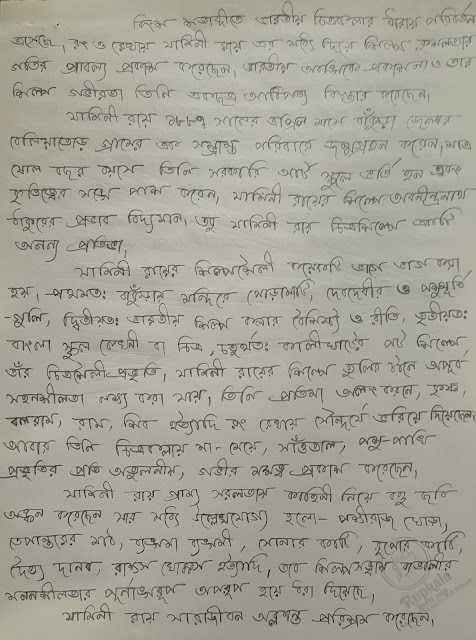 বিংশ শতাব্দীতে ভারতীয় চিত্রকলার ধারায় পরিবর্তন
এসেছে, রং ও রেখায় যামিনী রায় তার মধ্যে দিয়ে শিল্প
গতির প্রাবল্য প্রকাশ করেছেন, ভারতীয় ও তার
শিল্প গভীরতা তিনি আধিপত্য বিস্তার করেছেন,
যামিনী রায় ১৮৮৭ সালের এপ্রিল মাসে বাঁকুড়া জেলার
বেলিয়াতোড় গ্রামের এক সম্ভ্রান্ত পরিবারে জন্মগ্রহন করেন, মাত্র
ষোল বছর বয়সে তিনি সরকারি আর্ট স্কুলে ভর্তি হন এবং
কৃতিত্বের সঙ্গে পাশ করেন, যামিনী রায়ের শিল্পে অবনীন্দ্রনাথ
ঠাকুরের প্রভাব বিদ্যমান, তবু যামিনী রায় চিত্রশিল্পে
অনন্য প্রতিভা,
যামিনী রায়ের শিল্পশৈলী কয়েকটি ভাগে ভাগ করা
হয়, প্রথমতঃ বাঁকুড়ার মন্দিরে পোড়ামাটি, দেবদেবীর ও পশুমূর্তি
-গুলি, দ্বিতীয়তঃ ভারতীয় শিল্প কলার বৈশিষ্ট্য ও রীতি, তৃতীয়তঃ
বাংলা স্কুল বা চিত্র, চতুর্থতঃ কালীঘাটের পট শিল্পে
তাঁর চিত্রশৈলী প্রভৃতি, যামিনী রায়ের শিল্পে তুলির টানে অপূর্ব
লক্ষ্য করা যায়, তিনি প্রতিমা কৃষ্ণ,
বলরাম, রাম, শিব ইত্যাদি রং রেখায় সৌন্দর্যে ভরিয়ে দিয়েছেন,
আবার তিনি চিত্রকলায় মা-মেয়ে, সাঁওতাল, পশু-পাখি
প্রভৃতির প্রতি অতুলনীয়, গভীর মমত্ব প্রকাশ করেছেন,
যামিনী রায় গ্রাম্য সরলতায় কাহিনী নিয়ে বহু ছবি
অঙ্কন করেছেন যার মধ্যে উল্লেখযোগ্য হলো- পক্ষীরাজ ঘোড়া,
তেপান্তরের মাঠ, ব্যঙ্গমা ব্যঙ্গমী, সোনার কাঠি, রূপোর কাঠি,
দৈত্য দানব, রাক্ষস খোক্কস ইত্যাদি, তবে শিল্পসত্তায় বাঙালীর
মননশীলতার হয়ে ধরা দিয়েছে,
যামিনী রায় সারাজীবন অক্লান্ত পরিশ্রম করেছেন,
Rupkala